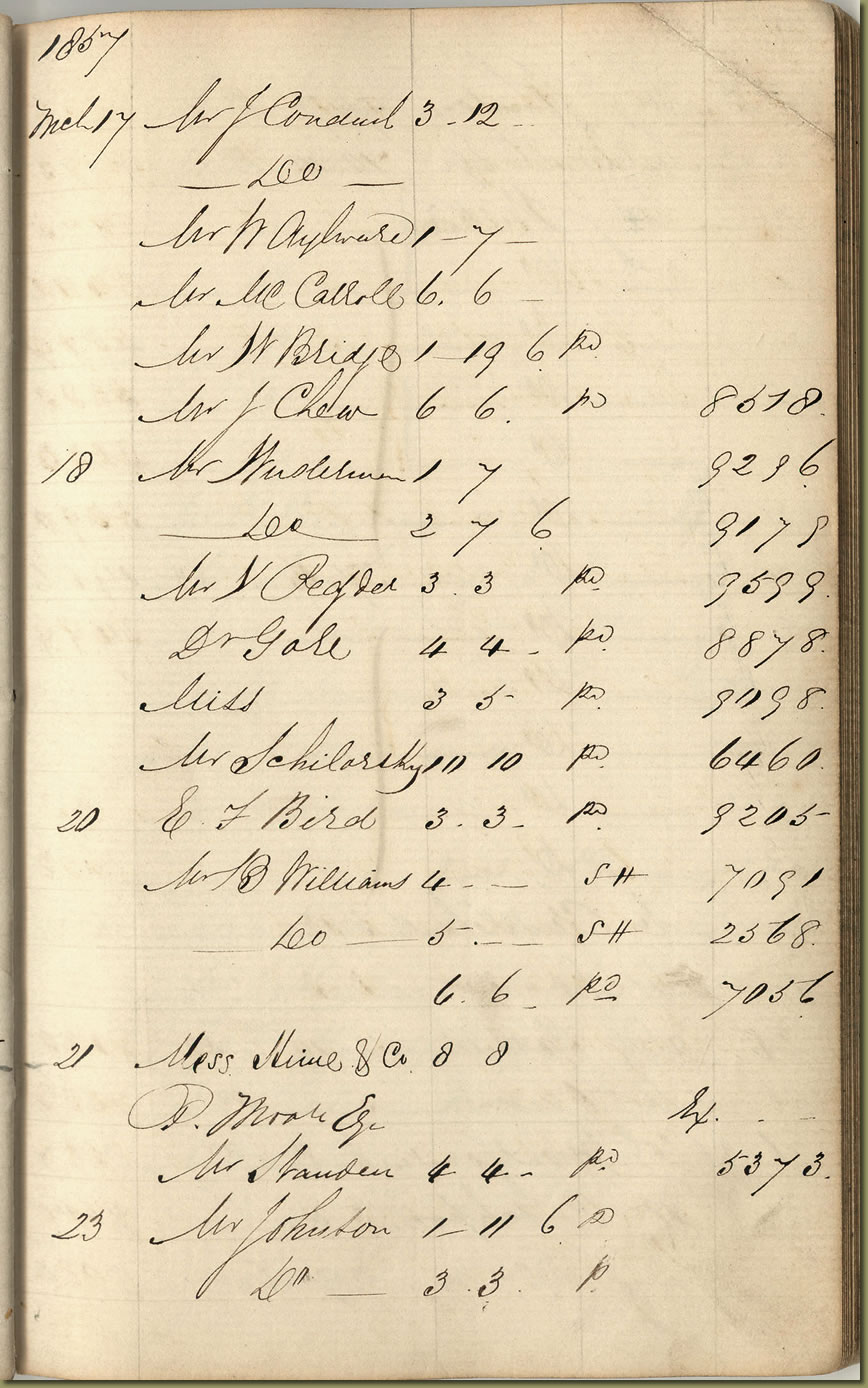 1857
Mch 17 Mr J Conduit 3 - 12 -
— Do —
Mr W Aylward 1 - 7 -
Mr Mc Carroll 6. 6 -
Mr W Bridge 1 - 19 6 Pd
Mr J Chew 6 6. Pd 8518.
18 Mr Wuderman 1 7 9296
— Do — 2 7 6 9179
Mr 3. 3 Pd 9599.
Dr Gore 4 4 - Pd 8878.
Miss 3 5 Pd 9098.
Mr Schilorsky 10 10 Pd 6460.
20 E. F Bird 3. 3 - Pd 9205
Mr B Williams 4 - — SH 7091
— Do — 5. — SH 2568.
6. 6 - Pd 7056
21 Mess. Hime & Co. 8 8
P. Moore Esq Ex. - -
Mr Standen 4 4 - Pd 5373.
23 Mr Johnston 1 - 11 6 Pd
Do — 3. 3. P